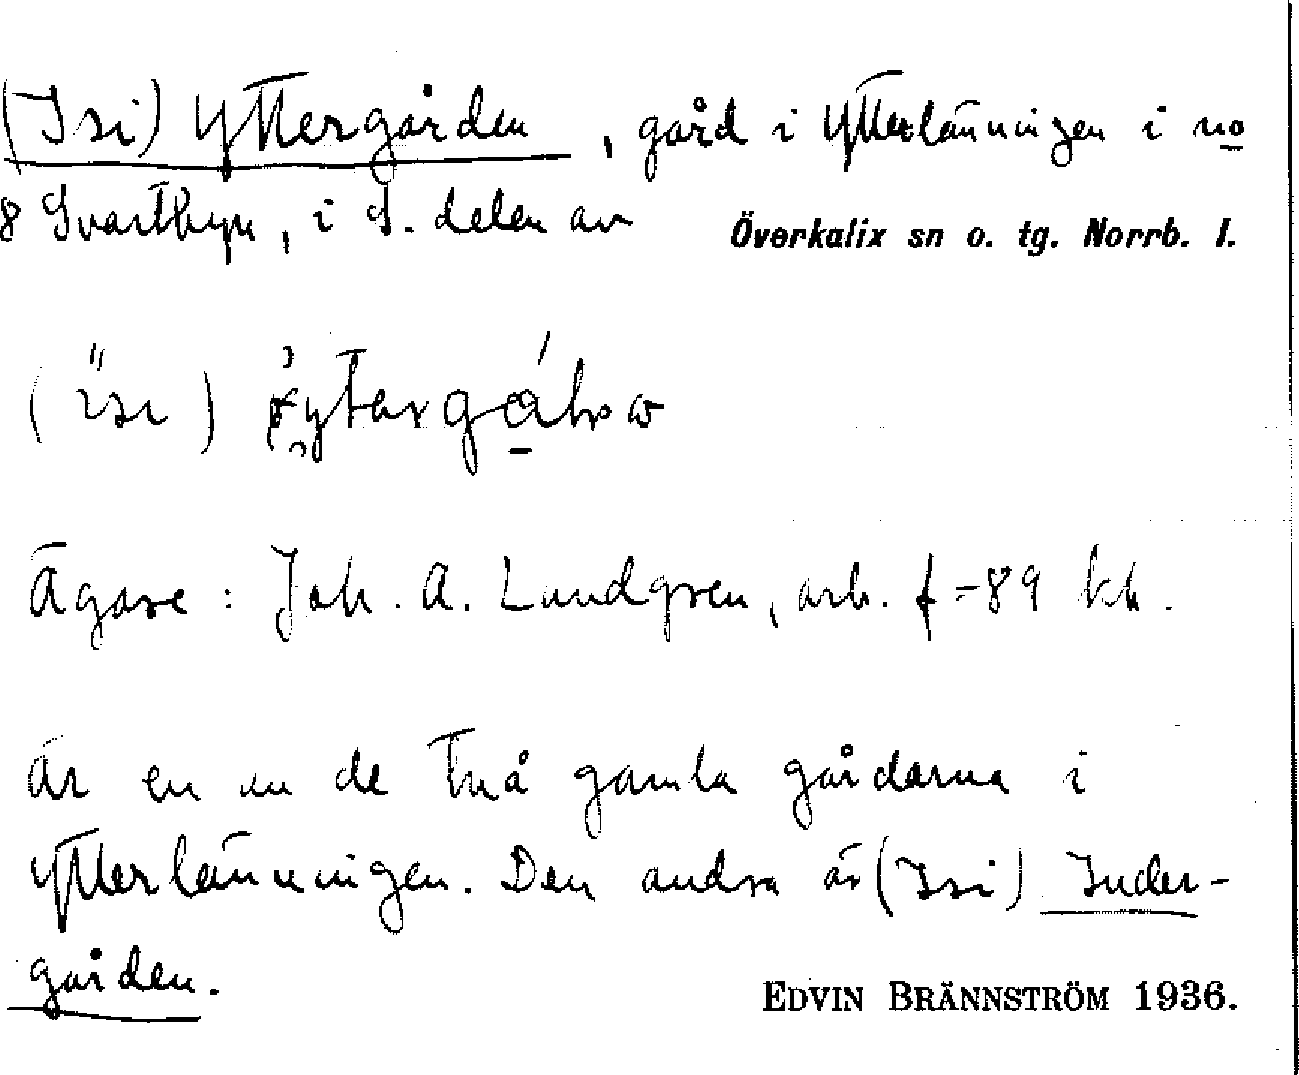 (Isi) Yttergården, gård i Ytterlänningen i no
8 Svartbyn, i S. delen av Överkalix sn o. tg. Norrb. l.
Ägare: Joh. A. Lundgren, arb. f -89 kh.
Är en av de två gamla gårdarna i
Ytterlänningen. Den andra är (Isi) Inder-
gården.
EDVIN BRÄNNSTRÖM 1936.